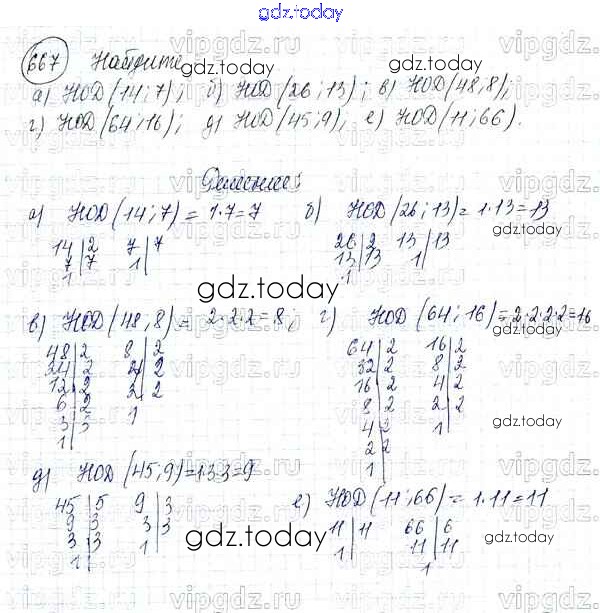 gdz.today
667 Найдите
а) НОД (14; 7); б) НОД (26; 13); в) НОД (48, 8);
г) НОД (64; 16); д) НОД (45; 9), е) НОД (11; 66).
Решение:
а) НОД (14; 7) = 1·7=7 б) НОД (26; 13)= 1·13=13
14|2 7|7 26|2 13|13
7|7 1| 13|13 1|
1| 1
gdz.today
в) НОД (48, 8)= 2·2·2=8; г) НОД (64; 16)=2·2·2·2=16
48|2 8|2 64|2 16|2
24|2 |2 32|2 8|2
12|2 2|2 16|2 4|2
6|2 1 8|2 2|2
3|3 4|2 1
1| 2|2
1|
д) НОД (45, 9)=1·3·3=9
45|5 9|3 е) НОД (11; 66)= 1·11=11
9|3 3|3 11|11 66|6
3|3 1| 1| 11|11
1| 1
gdz.today
gdz.today
gdz.today
gdz.today
gdz.today
gdz.today
vipgdz.ru